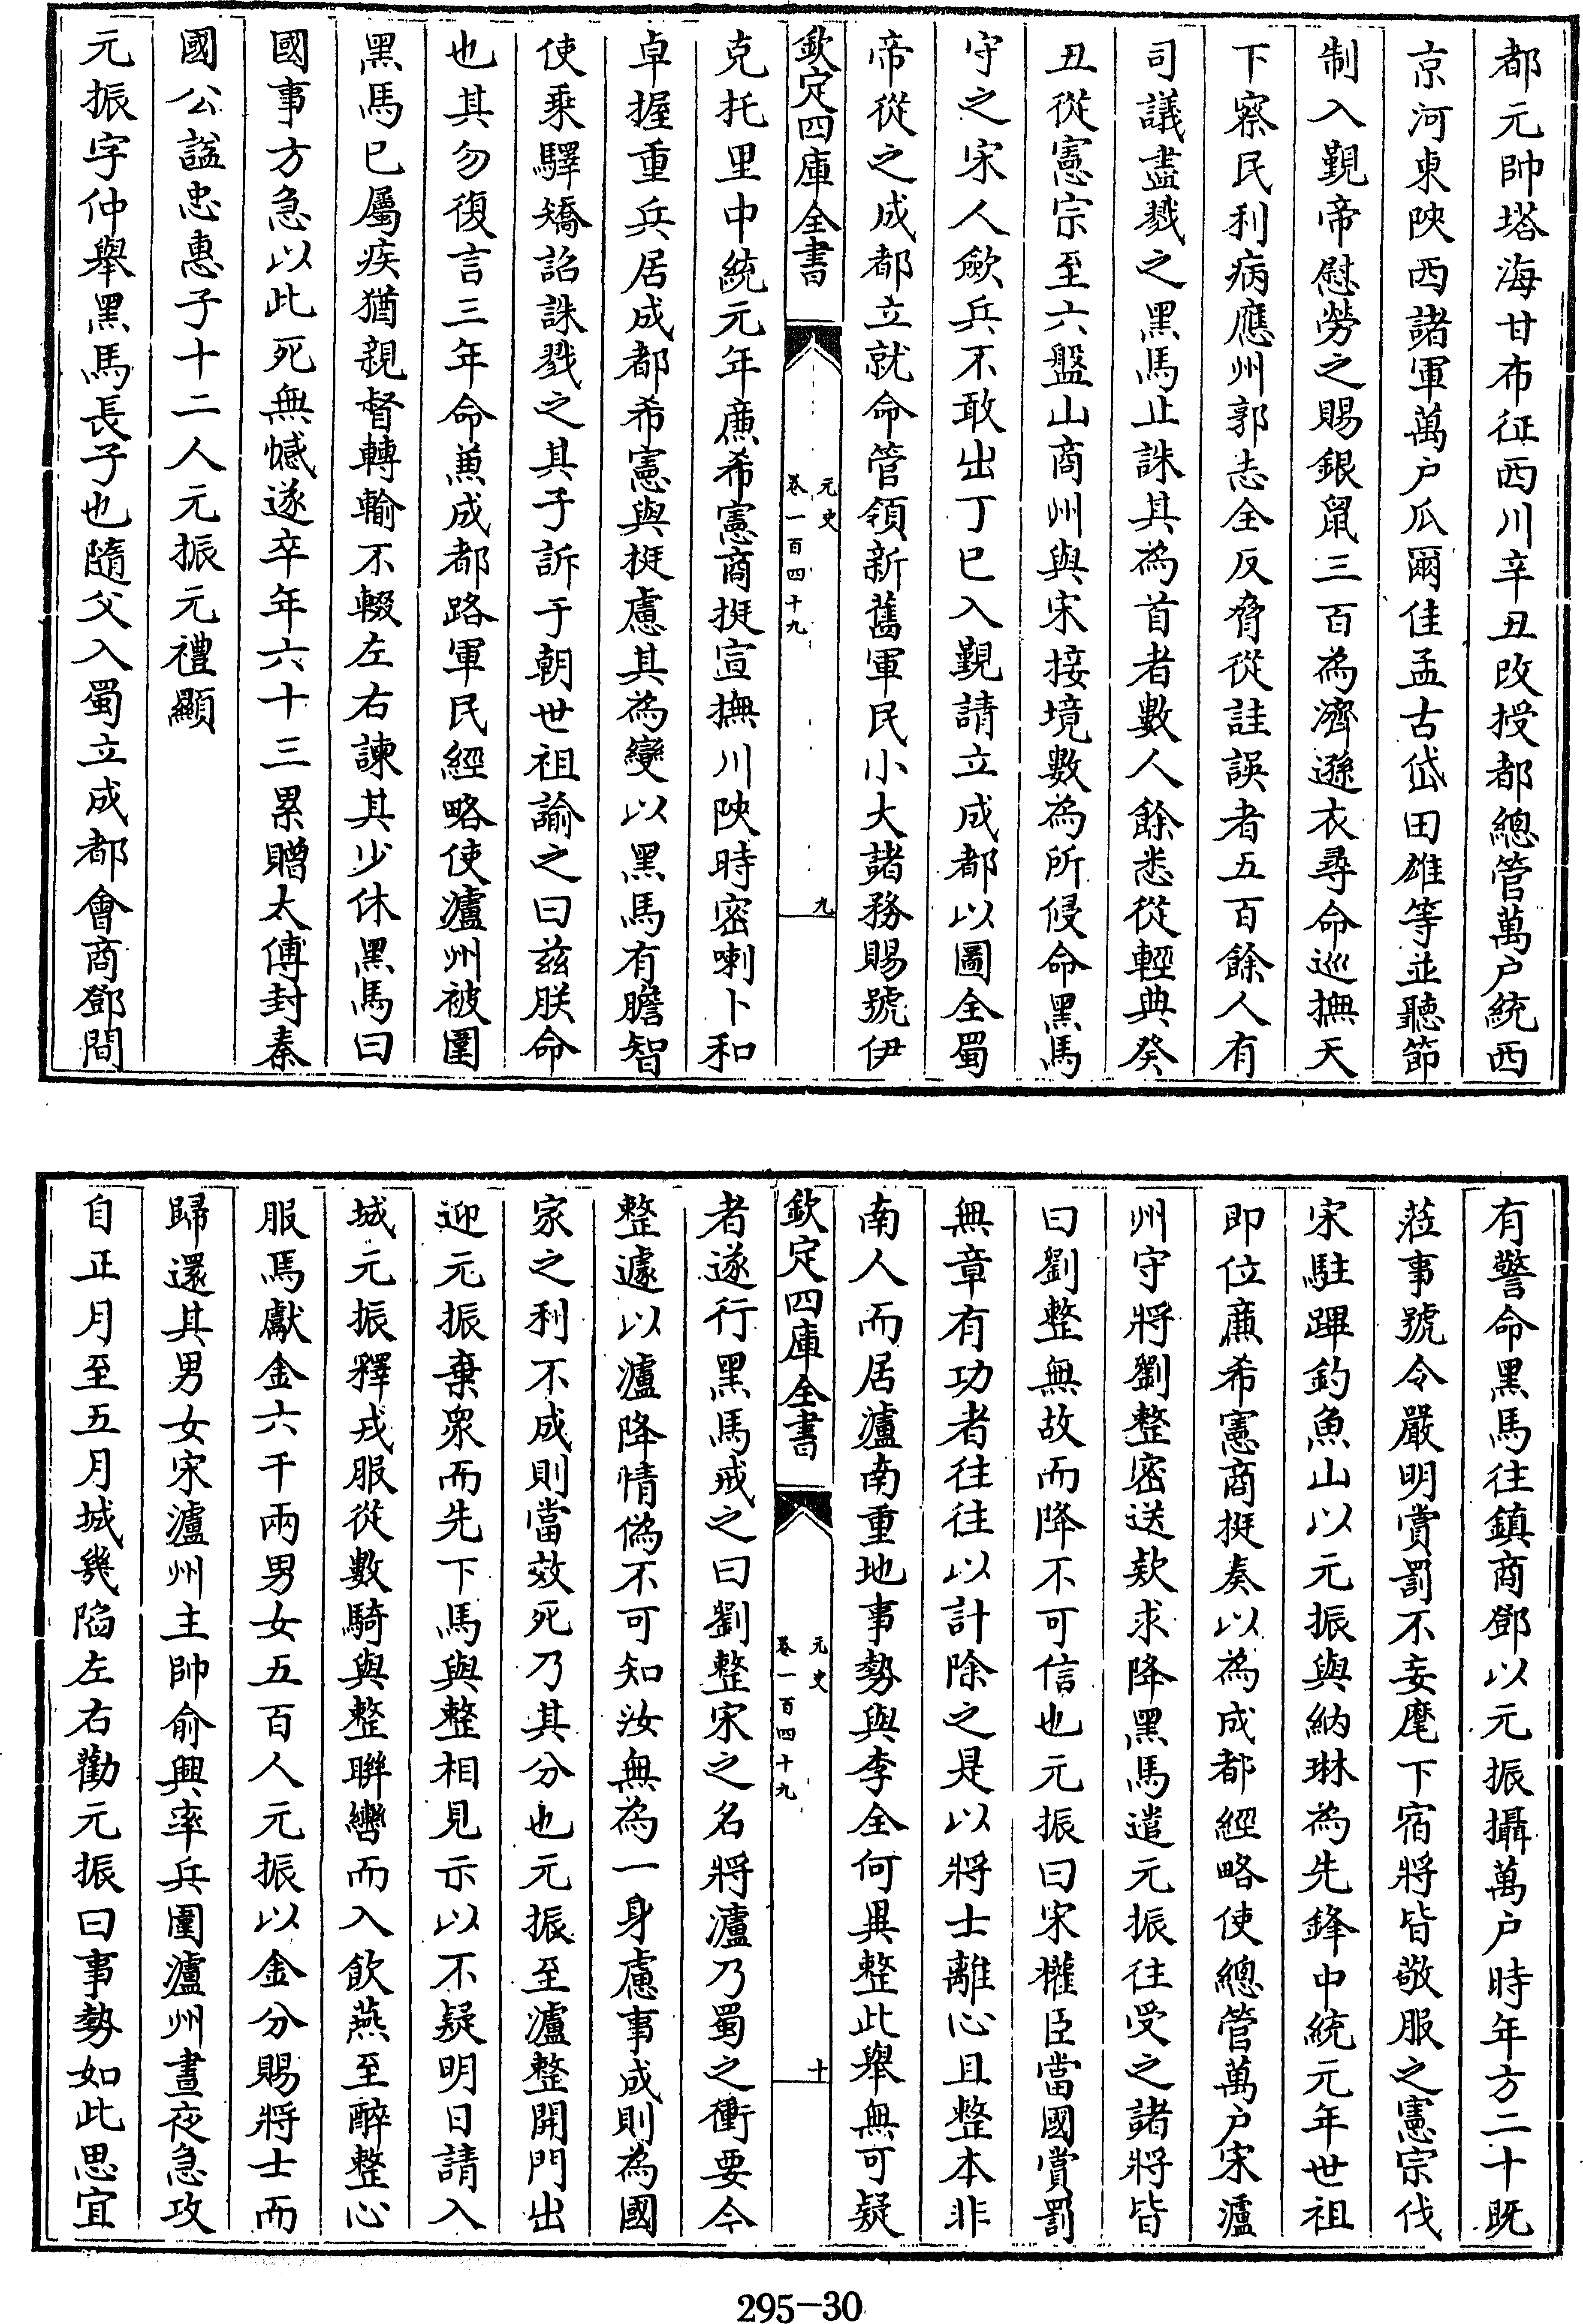 都元帥塔海甘布征西川辛丑改授都總管萬户統西
京河東陜西諸軍萬户瓜爾佳孟古岱田雄等並聽節
制入覲帝慰勞之賜銀鼠三百為濟遜衣尋命巡撫天
下察民利病應州郭志全反脅從詿誤者五百餘人有
司議盡戮之黑馬止誅其為首者數人餘悉從輕典癸
丑從憲宗至六盤山商州與宋接境數為所侵命黑馬
守之宋人歛兵不敢出丁巳入覲請立成都以圖全蜀
帝從之成都立就命管領新舊軍民小大諸務賜號伊
欽定四庫全書
元史
卷一百四十九
九
克托里中統元年亷希憲商挺宣撫川陜時密喇卜和
卓握重兵居成都希憲與挺慮其為變以黑馬有膽智
使乘驛矯詔誅戮之其子訴于朝世祖諭之曰兹朕命
也其勿復言三年命兼成都路軍民經略使瀘州被圍
黑馬已屬疾猶親督轉輸不輟左右諫其少休黑馬曰
國事方急以此死無憾遂卒年六十三累贈太傅封秦
國公諡忠惠子十二人元振元禮顯
元振字仲舉黑馬長子也隨父入蜀立成都會商鄧間
有警命黑馬往鎮商鄧以元振攝萬户時年方二十既
莅事號令嚴明賞罰不妄麾下宿將皆敬服之憲宗伐
宋駐蹕釣魚山以元振與納琳為先鋒中統元年世祖
即位亷希憲商挺奏以為成都經略使總管萬户宋瀘
州守將劉整密送欵求降黑馬遣元振往受之諸將皆
曰劉整無故而降不可信也元振曰宋權臣當國賞罰
無章有功者往往以計除之是以將士離心且整本非
南人而居瀘南重地事勢與李全何異整此舉無可疑
欽定四庫全書
元史
卷一百四十九
十
者遂行黑馬戒之曰劉整宋之名將瀘乃蜀之衝要今
整遽以瀘降情偽不可知汝無為一身慮事成則為國
家之利不成則當效死乃其分也元振至瀘整開門出
迎元振棄衆而先下馬與整相見示以不疑明日請入
城元振釋戎服從數騎與整聨轡而入飲燕至醉整心
服馬獻金六千兩男女五百人元振以金分賜將士而
歸還其男女宋瀘州主帥俞興率兵圍瀘州晝夜急攻
自正月至五月城幾陷左右勸元振曰事勢如此思宜
295-30